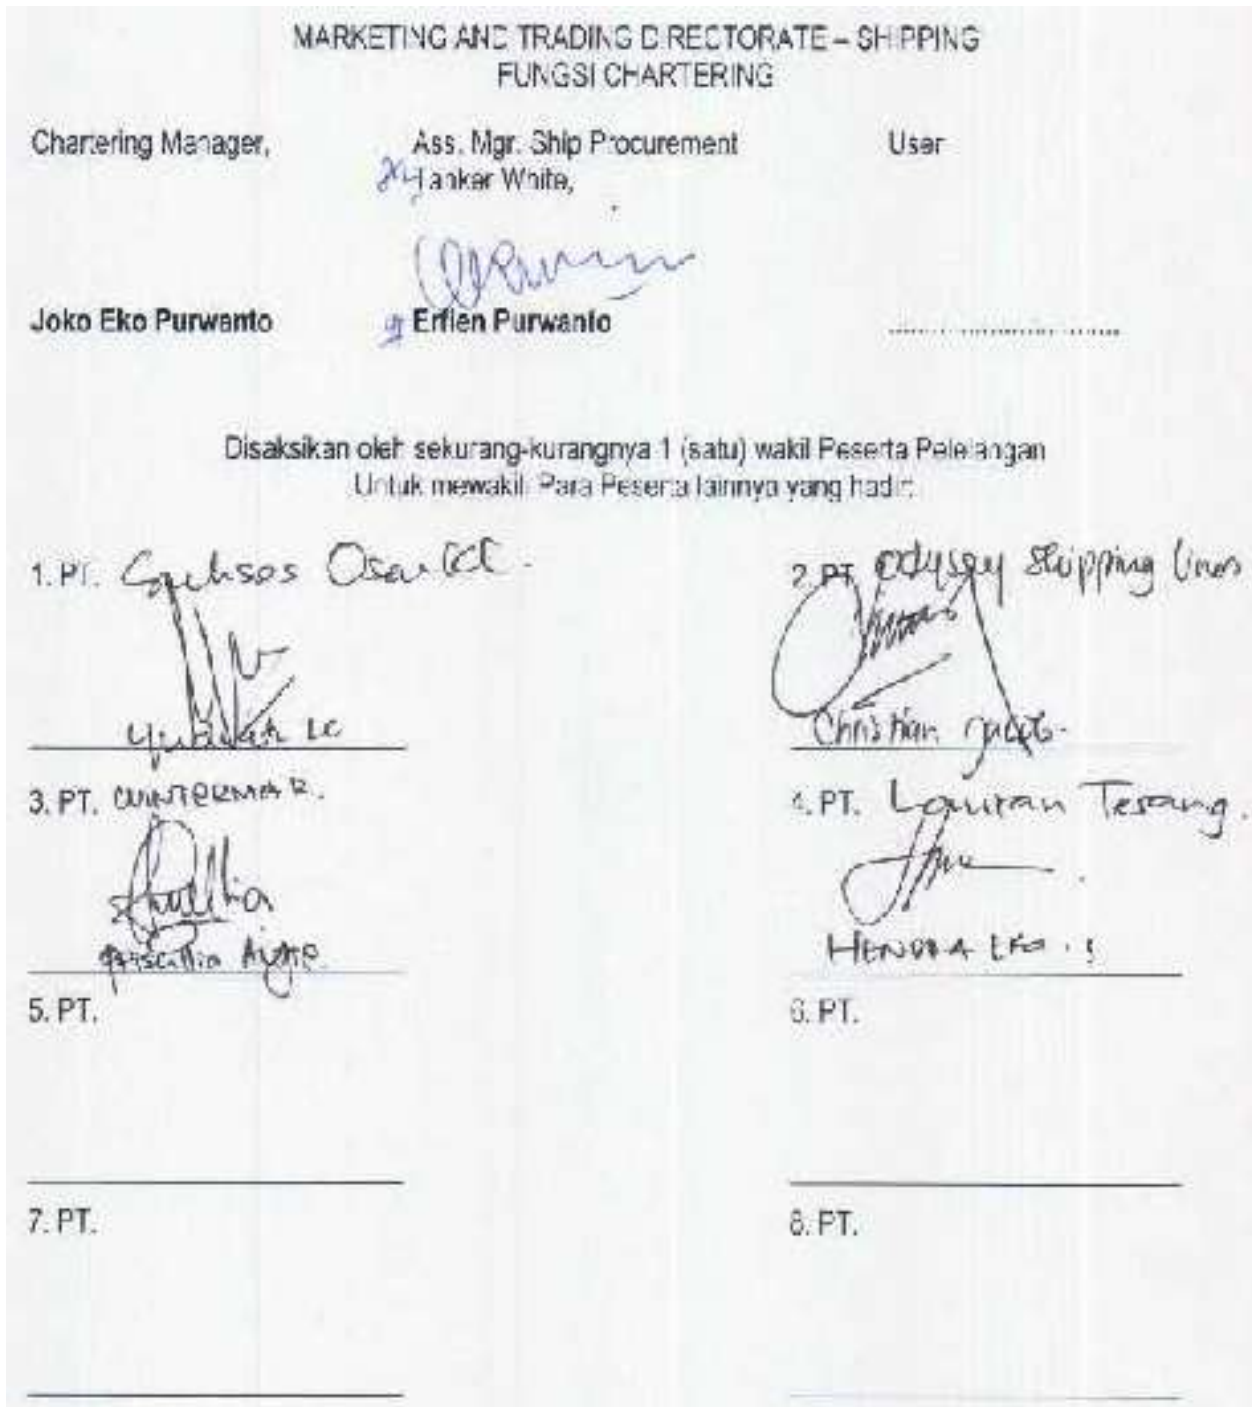 MARKETING AND TRADING DIRECTORATE – SHIPPING
FUNGSI CHARTERING
Chartering Manager,
Ass. Mgr. Ship Procurement
Tanker White,
User
Joko Eko Purwanto
Erfien Purwanto
Disaksikan oleh sekurang-kurangnya 1 (satu) wakil Peserta Pelelangan
Untuk mewakili Para Peserta lainnya yang hadir:
1. PT. Sukses
2. PT. Odyssey Shipping Lines
Christian
3. PT. WINTERMAR.
4. PT. Lautan Terang.
Priscillia
HENDRA
5. PT.
6. PT.
7. PT.
8. PT.